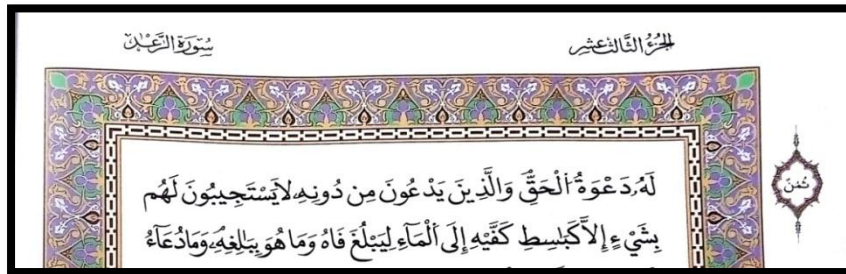 الجزء الثالث عشر
سُورَةُ الرَّعْدِ
لَهُۥ دَعْوَةُ اُ۬لْحَقِّۖ وَالَّذِينَ يَدْعُونَ مِن دُونِهِۦ لَا يَسْتَجِيبُونَ لَهُم
ثُمُنٌ
بِشَيْءٍ إِلَّا كَبَٰسِطِ كَفَّيْهِ إِلَى اَ۬لْمَآءِ لِيَبْلُغَ فَاهُ وَمَا هُوَ بِبَٰلِغِهِۦۖ وَمَا دُعَآءُ